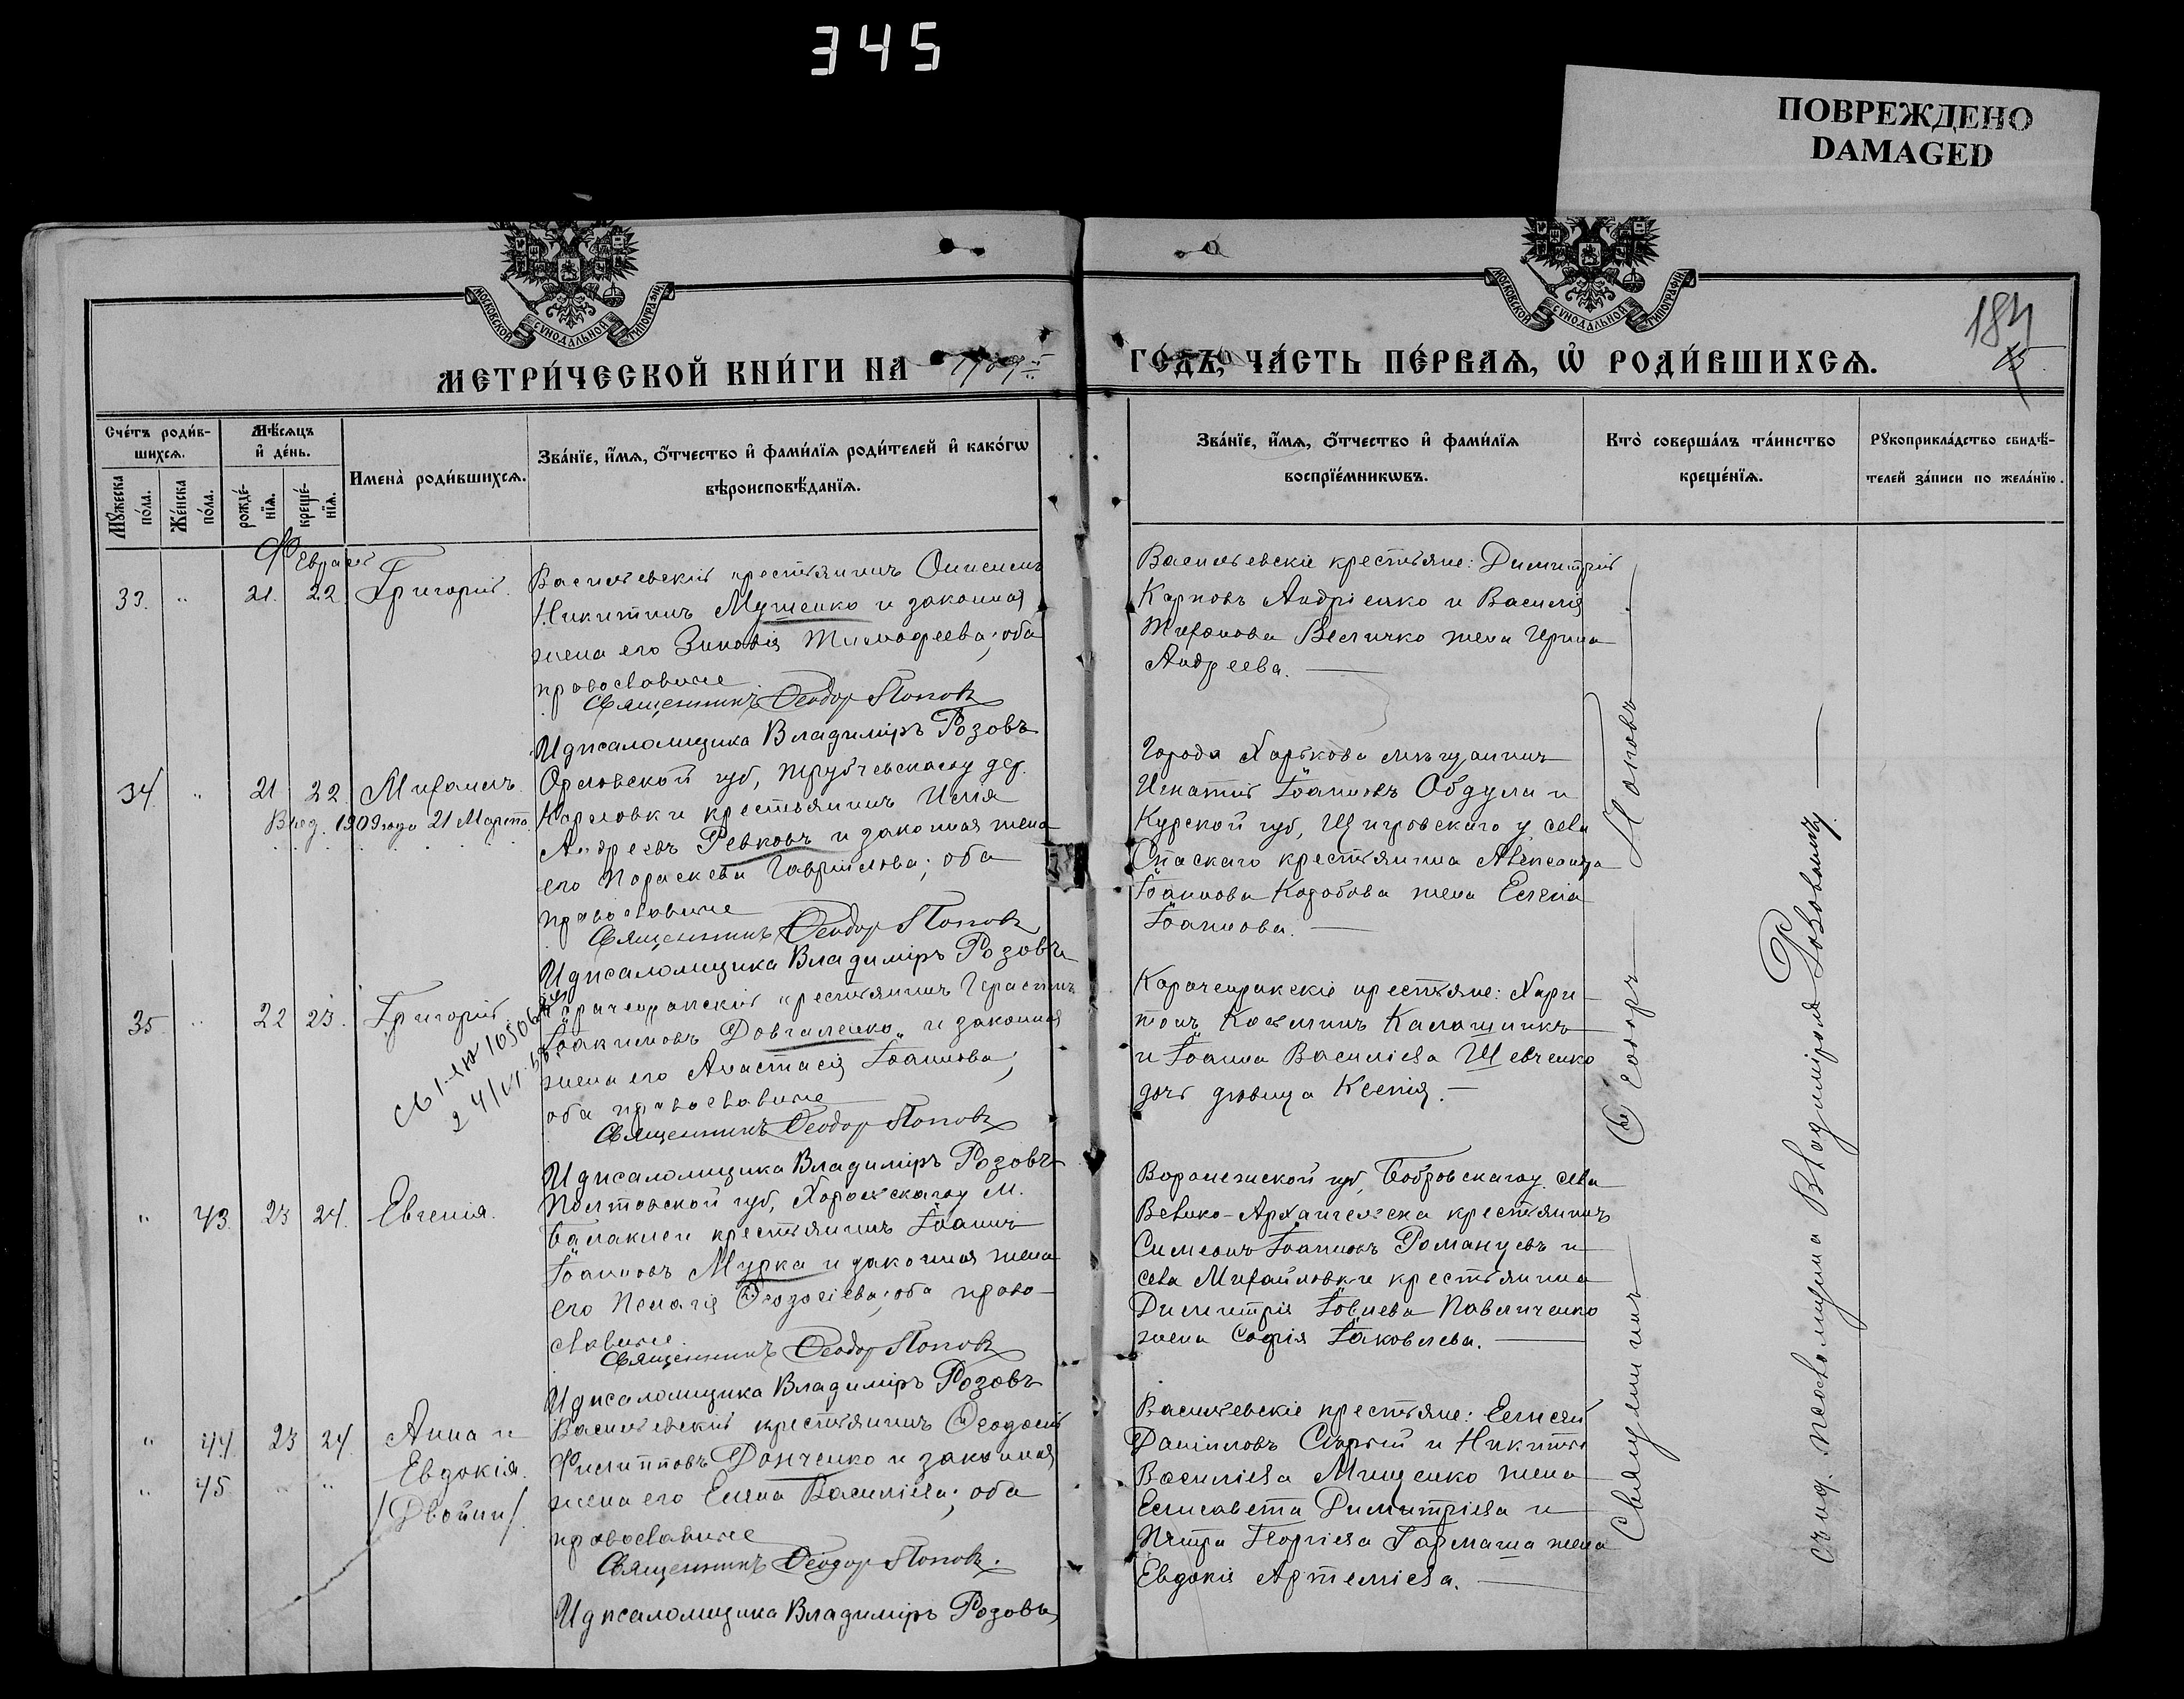 345
ПОВРЕЖДЕНО
DAMAGED
МОСКОВСКОЙ СУНОДАЛЬНОЙ ТИПОГРАФІИ
МОСКОВСКОЙ СУНОДАЛЬНОЙ ТИПОГРАФІИ
184
15
МЕТРИ́ЧЕСКОЙ КНИ́ГИ НА 1909 ГО́ДЪ, ЧА́СТЬ ПЕ́РВАѦ, Ѡ҆ РОДИ́ВШИХСѦ.
Сче́тъ роди́в-
шихсѧ.
Мѣ́сѧцъ
и҆ де́нь.
Имена̀ роди́вшихсѧ.
Зва́нїе, и҆́мѧ, ѻ҆́тчество и҆ фами́лїѧ роди́телей и҆ како́гѡ
вѣроисповѣ́данїѧ.
Мꙋ́жеска по́ла.
Же́нска по́ла.
рожде́-нїѧ.
креще́-нїѧ.
Зва́нїе, и҆́мѧ, ѻ҆́тчество и҆ фами́лїѧ
воспрїе́мникѡвъ.
Кто̀ соверша́лъ та́инство
креще́нїѧ.
Рꙋкоприкла́дство свидѣ́-
телей за́писи по жела́нїю.
Февраля
33. " 21. 22. Григорій.
Васильевскій крестьянинъ Онисимъ
Никитинъ Мушенко и законная
жена его Зиновія Тимофеева; оба
православные
Священникъ Ѳеодоръ Поповъ
И д псаломщика Владиміръ Розовъ
Васильевскіе крестьяне: Димитрій
Карповъ Андріенко и Василія
Тифонова Величко жена Ирина
Андреева.
34 " 21 22 Михаилъ.
Выд. 1909 года 21 Марта.
Орловской губ, Трубчевскаго у дер.
Карловки крестьянинъ Илія
Андреевъ Ревковъ и законная жена
его Параскева Гавріилова; оба
православные
Священникъ Ѳеодоръ Поповъ
И д псаломщика Владиміръ Розовъ
Города Харькова мѣщанинъ
Игнатій Іоанновъ Обдула и
Курской губ, Щигровскаго у, села
Спаскаго крестьянина Александра
Іоаннова Коробова жена Евгенія
Іоаннова.
35 " 22 23. Григорій.
24/VI 58
крестьянинъ Герасимъ
Іоакимовъ Довгаленко и законная
жена его Анастасія Іоаннова;
оба православные
Священникъ Ѳеодоръ Поповъ
И д псаломщика Владиміръ Розовъ
крестьяне: Хари-
тонъ Косминъ Калашникъ
и Іоанна Василіева Шевченко
дочь дѣвица Ксенія.
" 43. 23 24. Евгенія.
Полтавской губ, Хорольскаго у М.
Балаклеи крестьянинъ Іоаннъ
Іоанновъ Мурка и законная жена
его Пелагія Ѳеодосіева; оба право-
славные.
Священникъ Ѳеодоръ Поповъ
И д псаломщика Владиміръ Розовъ
Воронежской губ, Бобровскаго у. села
Велико-Архангельска крестьянинъ
Симеонъ Іоанновъ Романцевъ и
села Михайловки крестьянина
Димитрія Іовлева Павличенко
жена Софія Іаковлева.
" 44 23 24. Анна и
" 45 " " Евдокія.
/Двойни/.
Васильевскій крестьянинъ Ѳеодосій
Филипповъ Донченко и законная
жена его Елена Василіева; оба
православные
Священникъ Ѳеодоръ Поповъ.
И д псаломщика Владиміръ Розовъ
Васильевскіе крестьяне: Елисей
Даніиловъ Сѣрый и Никиты
Василіева Мищенко жена
Елисавета Димитріева и
Петра Георгіева Гармаша жена
Евдокія Артеміева.
Священникъ Ѳеодоръ Поповъ
псаломщика Владиміромъ Розовымъ